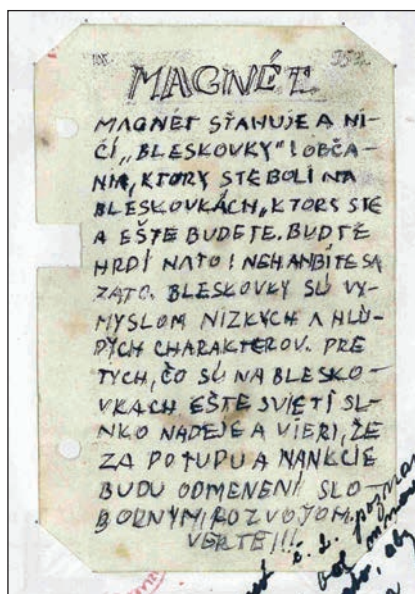 MAGNÉT
MAGNÉT SŤAHUJE A NI-
ČÍ „BLESKOVKY"! OBČA-
NIA, KTORÝ STE BOLI NA
BLESKOVKÁCH, KTORÝ STE
A EŠTE BUDETE. BUĎTE
HRDÍ NATO! NEHANBITE SA
ZATO. BLESKOVKY SÚ VÝ-
MYSLOM NÍZKYCH A HLÚ-
PÝCH CHARAKTEROV. PRE
TÝCH, ČO SÚ NA BLESKO-
VKACH EŠTE SVIETÍ SL-
NKO NÁDEJE A VIERI, ŽE
ZA POTUPU A
BUDU ODMENENÍ SLO-
BODNÝM ROZVOJOM.
VERTE!!!